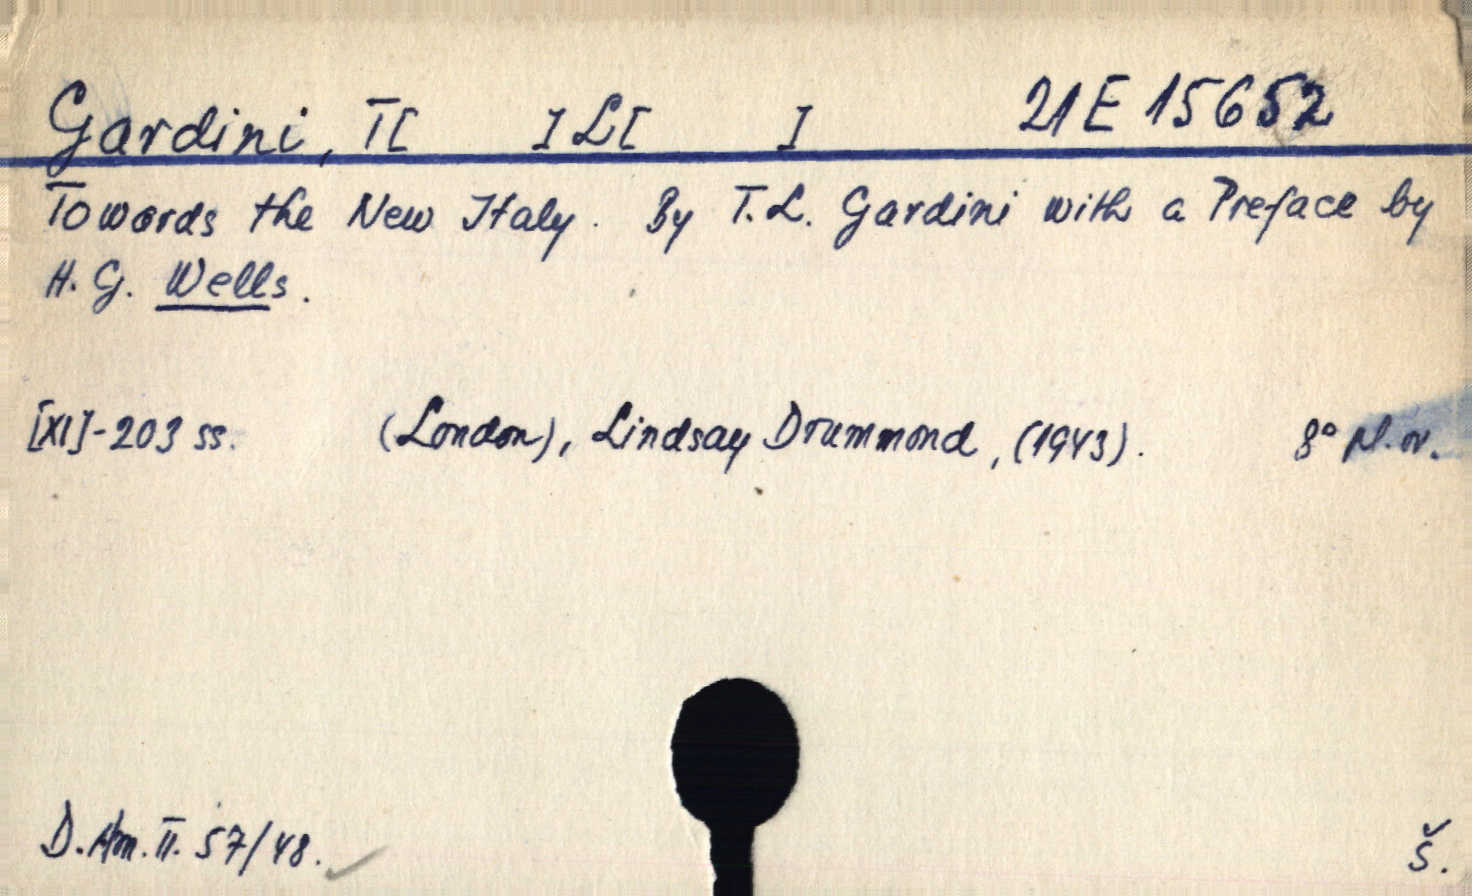 Gardini, T[ ] L[ ] 21 E 15652
Towards the New Italy. By T. L. Gardini with a Preface by
H. G. Wells.
[XI]-203 ss. (London), Lindsay Drummond, (1943). 8° N. ov.
D. Am. II. 57/48.
Š.